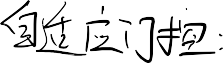 自适应门担: